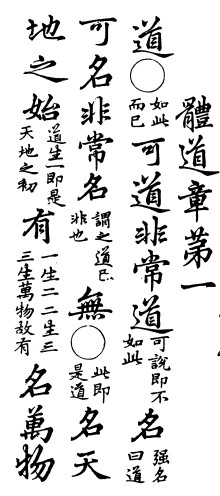 體道章第一
道○如此而已可道非常道可說即不如此名强名曰道
可名非常名謂之道已非也無○此即是道名天
地之始道生一即是天地之初有一生二二生三三生萬物故有名萬物